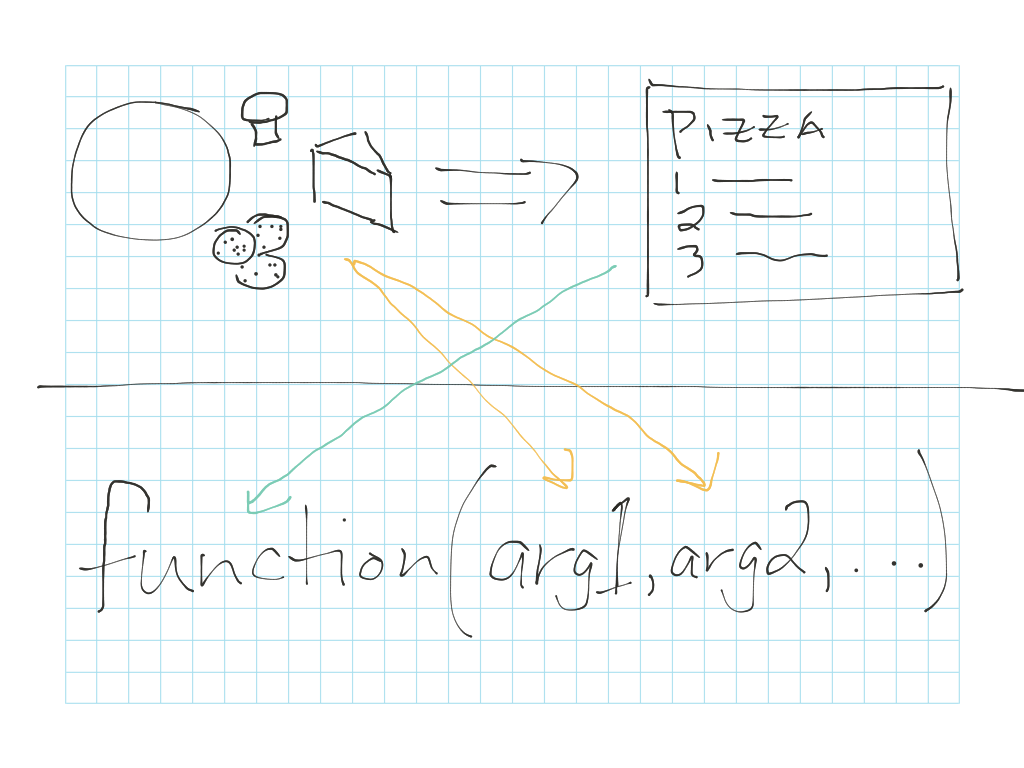 PIZZA
1
2
3
function(arg1, arg2, ...)